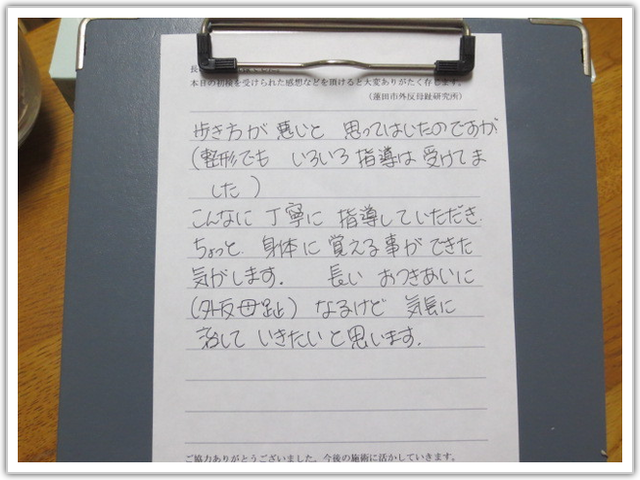 本日の初検を受けられた感想などを頂けると大変ありがたく存じます。
（蓮田市外反母趾研究所）
歩き方が 悪いと 思ってはいたのですが
（整形でも いろいろ 指導は 受けてま
した）
こんなに 丁寧に 指導していただき、
ちょっと 身体に 覚える事ができた
気がします。 長い おつきあいに
（外反母趾） なるけど 気長に
治して いきたいと思います。
ご協力ありがとうございました。今後の施術に活かしていきます。